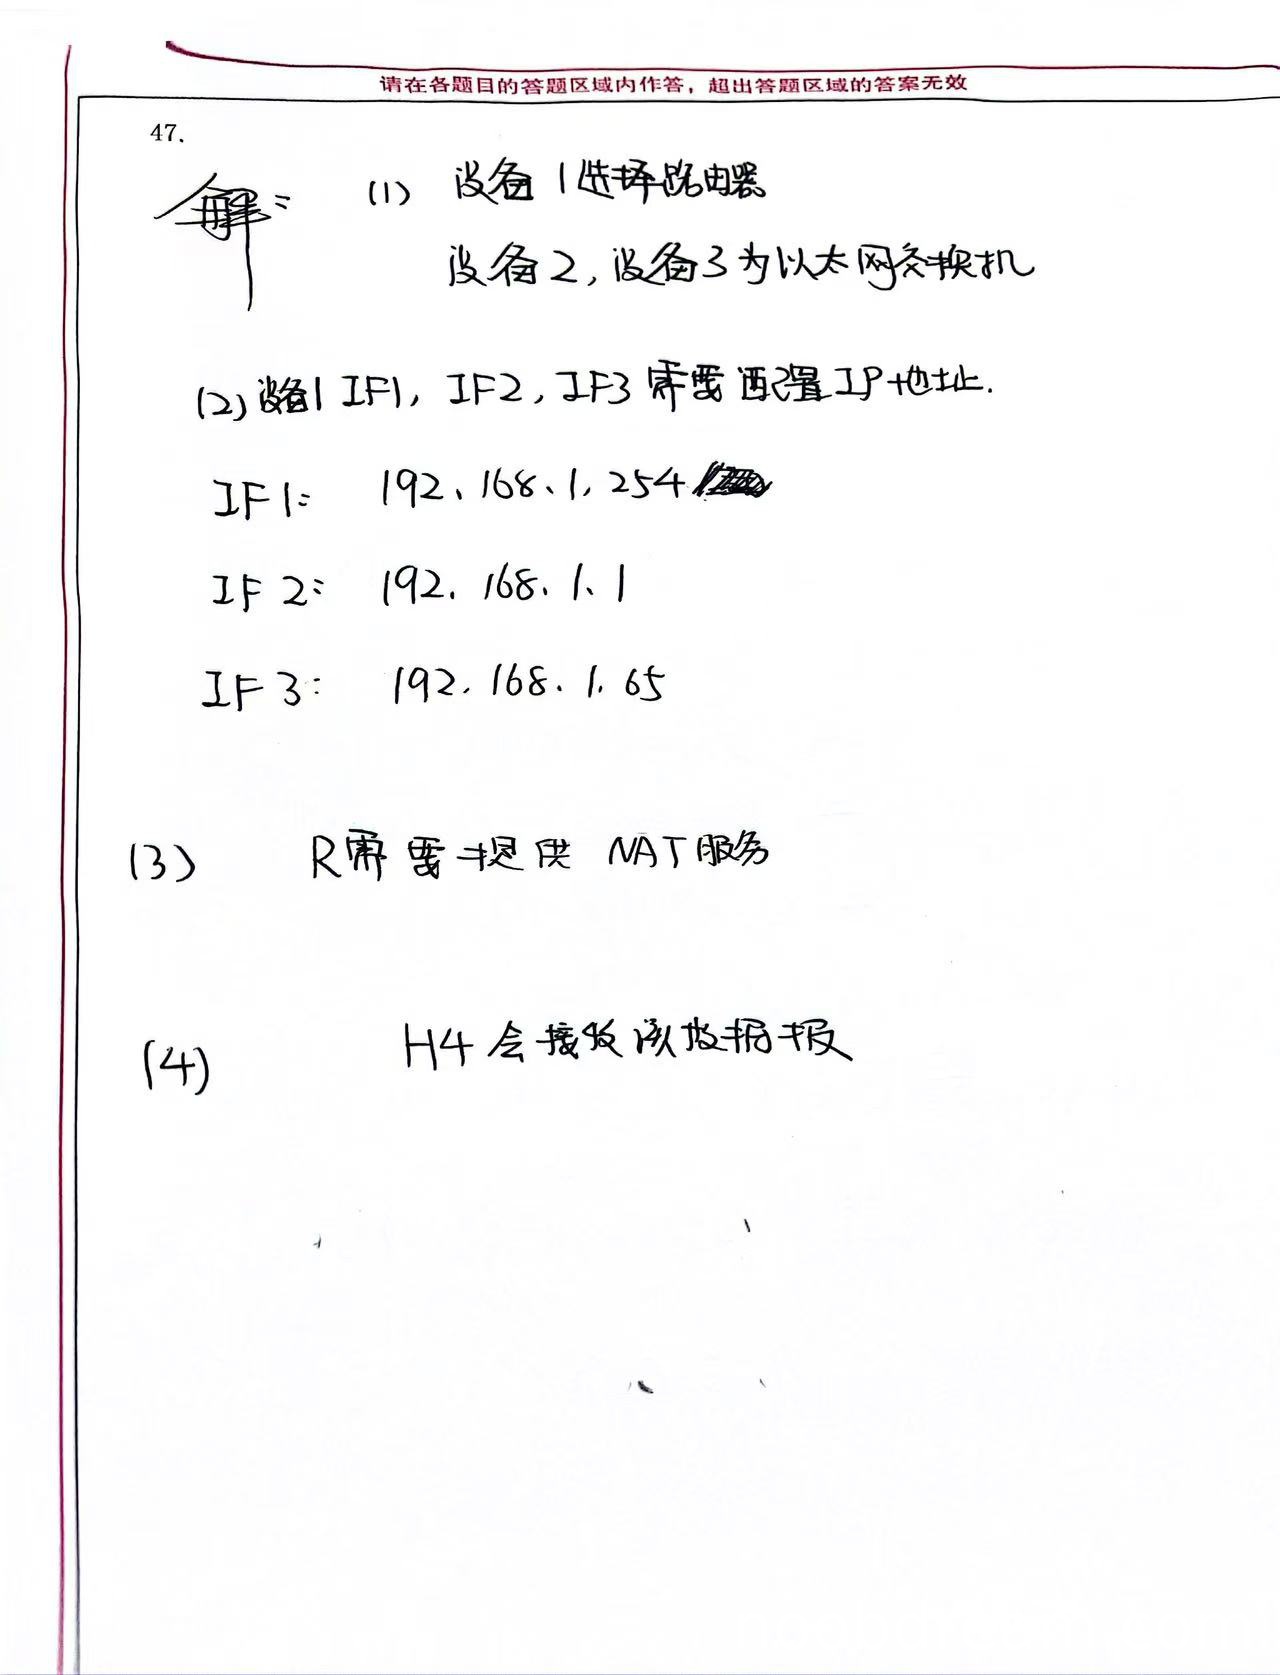 请在各题目的答题区域内作答，超出答题区域的答案无效
47.
解： (1) 设备1选择路由器
设备2，设备3为以太网交换机
(2) 设备1 IF1, IF2, IF3需要配置IP地址.
IF1: 192.168.1.254
IF2: 192.168.1.1
IF3: 192.168.1.65
(3) R需要提供NAT服务
(4) H4会接收该数据报